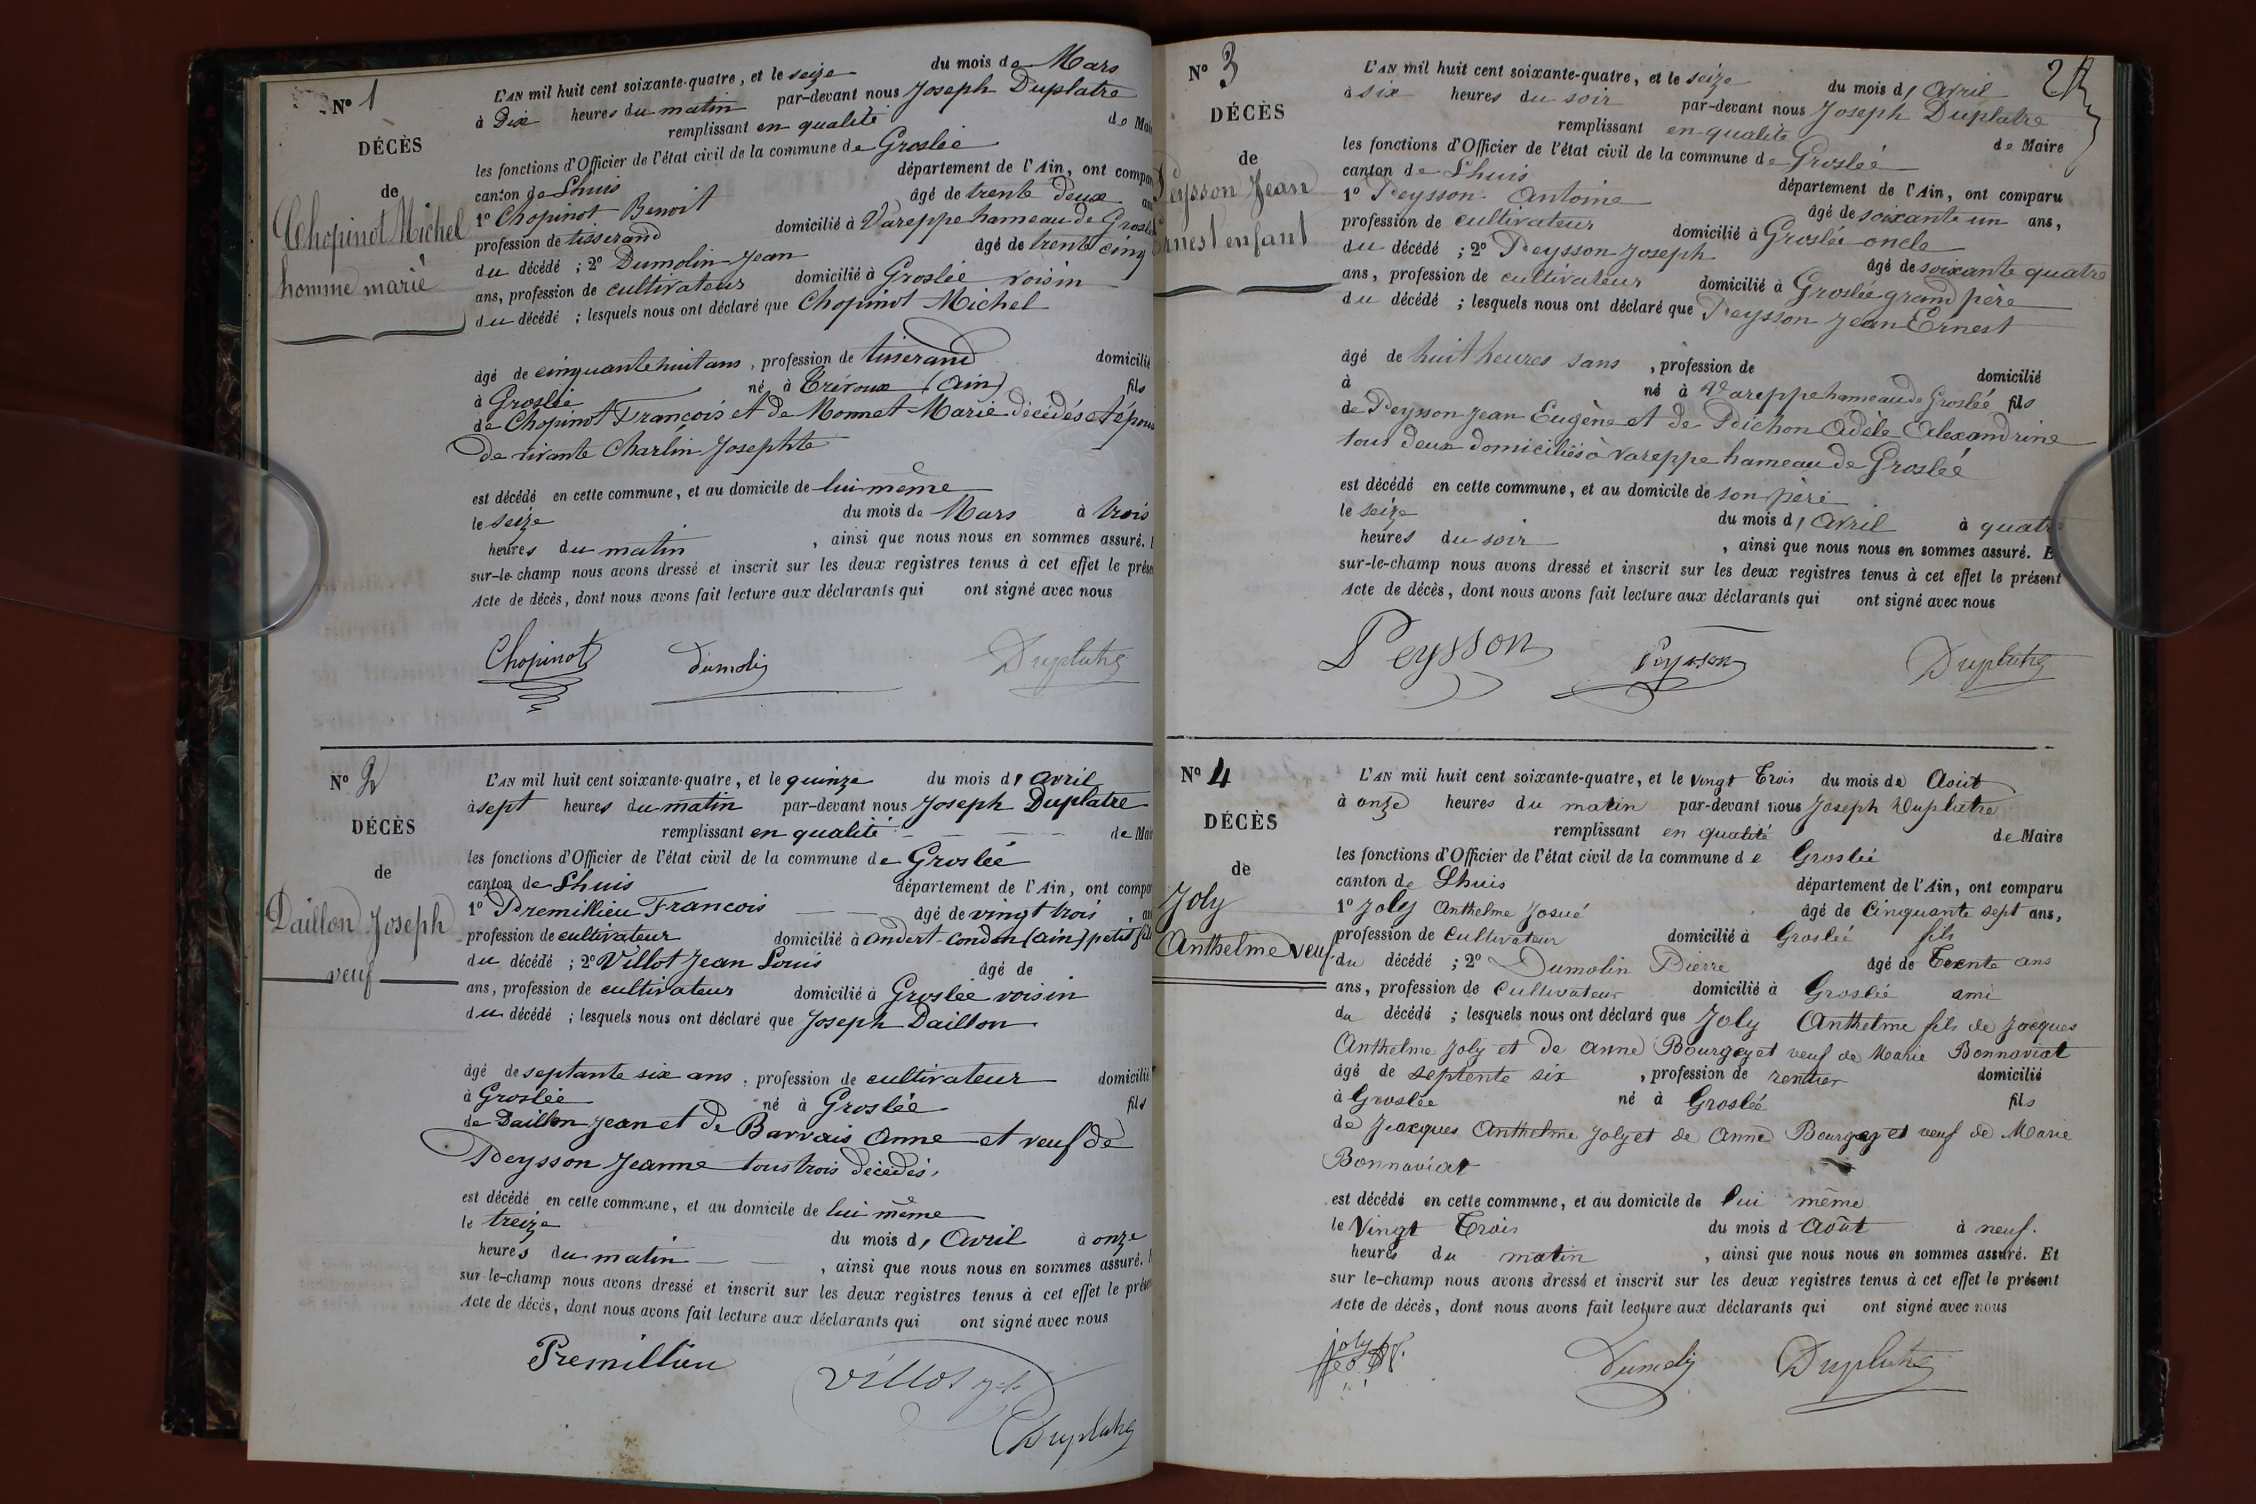 N° 1
DÉCÈS
de
Chopinot Michel
homme marié
L'AN mil huit cent soixante-quatre, et le seize du mois de Mars
à Dix heures du matin par-devant nous Joseph Duplatre
remplissant en qualité de Mai
les fonctions d'Officier de l'état civil de la commune de Groslée
canton de Lhuis département de l'Ain, ont compar
1° Chopinot Benoit âgé de trente deux an
profession de tisserand domicilié à Vareppe hameau de Grosl
du décédé ; 2° Dumolin Jean âgé de trente cinq
ans, profession de cultivateur domicilié à Groslée voisin
du décédé ; lesquels nous ont déclaré que Chopinot Michel
âgé de cinquante huit ans, profession de tisserand domicilié
à Groslée né à Trévoux (Ain) fils
de Chopinot François et de Monnet Marie décédés et épou
de vivante Charlin Josephte
est décédé en cette commune, et au domicile de lui même
le seize du mois de Mars à trois
heures du matin, ainsi que nous nous en sommes assuré.
sur-le-champ nous avons dressé et inscrit sur les deux registres tenus à cet effet le prése
Acte de décès, dont nous avons fait lecture aux déclarants qui ont signé avec nous
Chopinot dumolin Duplatre
N° 2
DÉCÈS
de
Daillon Joseph
veuf
L'AN mil huit cent soixante-quatre, et le quinze du mois d'Avril
à sept heures du matin par-devant nous Joseph Duplatre
remplissant en qualité de Mai
les fonctions d'Officier de l'état civil de la commune de Groslée
canton de Lhuis département de l'Ain, ont compar
1° Premillieu Francois âgé de vingt trois, an
profession de cultivateur domicilié à Andert-Condon (Ain) petit fils
du décédé ; 2° Villot Jean Louis âgé de
ans, profession de cultivateur domicilié à Groslée voisin
du décédé ; lesquels nous ont déclaré que Joseph Daillon
âgé de septante six ans, profession de cultivateur domicilié
à Groslée né à Groslée fils
de Daillon Jean et de Barvais Anne et veuf de
Peysson Jeanne tous trois décédés,
est décédé en cette commune, et au domicile de lui même
le treize du mois d'Avril à onze
heures du matin, ainsi que nous nous en sommes assuré.
sur-le-champ nous avons dressé et inscrit sur les deux registres tenus à cet effet le prése
Acte de décès, dont nous avons fait lecture aux déclarants qui ont signé avec nous
Premillieu Villot
Duplatre
N° 3
DÉCÈS
de
Peysson Jean
Ernest enfant
L'AN mil huit cent soixante-quatre, et le seize du mois d'Avril
à six heures du soir par-devant nous Joseph Duplatre
remplissant en qualité de Maire
les fonctions d'Officier de l'état civil de la commune de Groslée
canton de Lhuis département de l'Ain, ont comparu
1° Peysson Antoine âgé de soixante un ans,
profession de cultivateur domicilié à Groslée oncle
du décédé ; 2° Peysson Joseph âgé de soixante quatre
ans, profession de cultivateur domicilié à Groslée grand père
du décédé ; lesquels nous ont déclaré que Peysson Jean Ernest
âgé de huit heures sans, profession de domicilié
à né à Vareppe hameau de Groslée fils
de Peysson Jean Eugène et de Pichon Adèle Alexandrine
tous deux domiciliés à Vareppe hameau de Groslée
est décédé en cette commune, et au domicile de son père
le seize du mois d'Avril à quatre
heures du soir, ainsi que nous nous en sommes assuré. E
sur-le-champ nous avons dressé et inscrit sur les deux registres tenus à cet effet le présent
Acte de décès, dont nous avons fait lecture aux déclarants qui ont signé avec nous
Peysson Peysson Duplatre
N° 4
DÉCÈS
de
Joly
Anthelme veuf
L'AN mil huit cent soixante-quatre, et le vingt Trois du mois de Août
à onze heures du matin par-devant nous Joseph Duplatre
remplissant en qualité de Maire
les fonctions d'Officier de l'état civil de la commune de Groslée
canton de Lhuis département de l'Ain, ont comparu
1° Joly Anthelme Josué âgé de Cinquante sept ans,
profession de Cultivateur domicilié à Groslée fils
du décédé ; 2° Dumolin Pierre âgé de Trente ans
ans, profession de Cultivateur domicilié à Groslée ami
du décédé ; lesquels nous ont déclaré que Joly Anthelme fils de Jacques
Anthelme Joly et de Anne Bourgey et veuf de Marie Bonnaviat
âgé de septente six, profession de rentier domicilié
à Groslée né à Groslée fils
de Jacques Anthelme Joly et de Anne Bourgey et veuf de Marie
Bonnaviat
est décédé en cette commune, et au domicile de lui même
le Vingt Trois du mois d Août à neuf.
heures du matin, ainsi que nous nous en sommes assuré. Et
sur le-champ nous avons dressé et inscrit sur les deux registres tenus à cet effet le présent
Acte de décès, dont nous avons fait lecture aux déclarants qui ont signé avec nous
joly Dumolin Duplatre